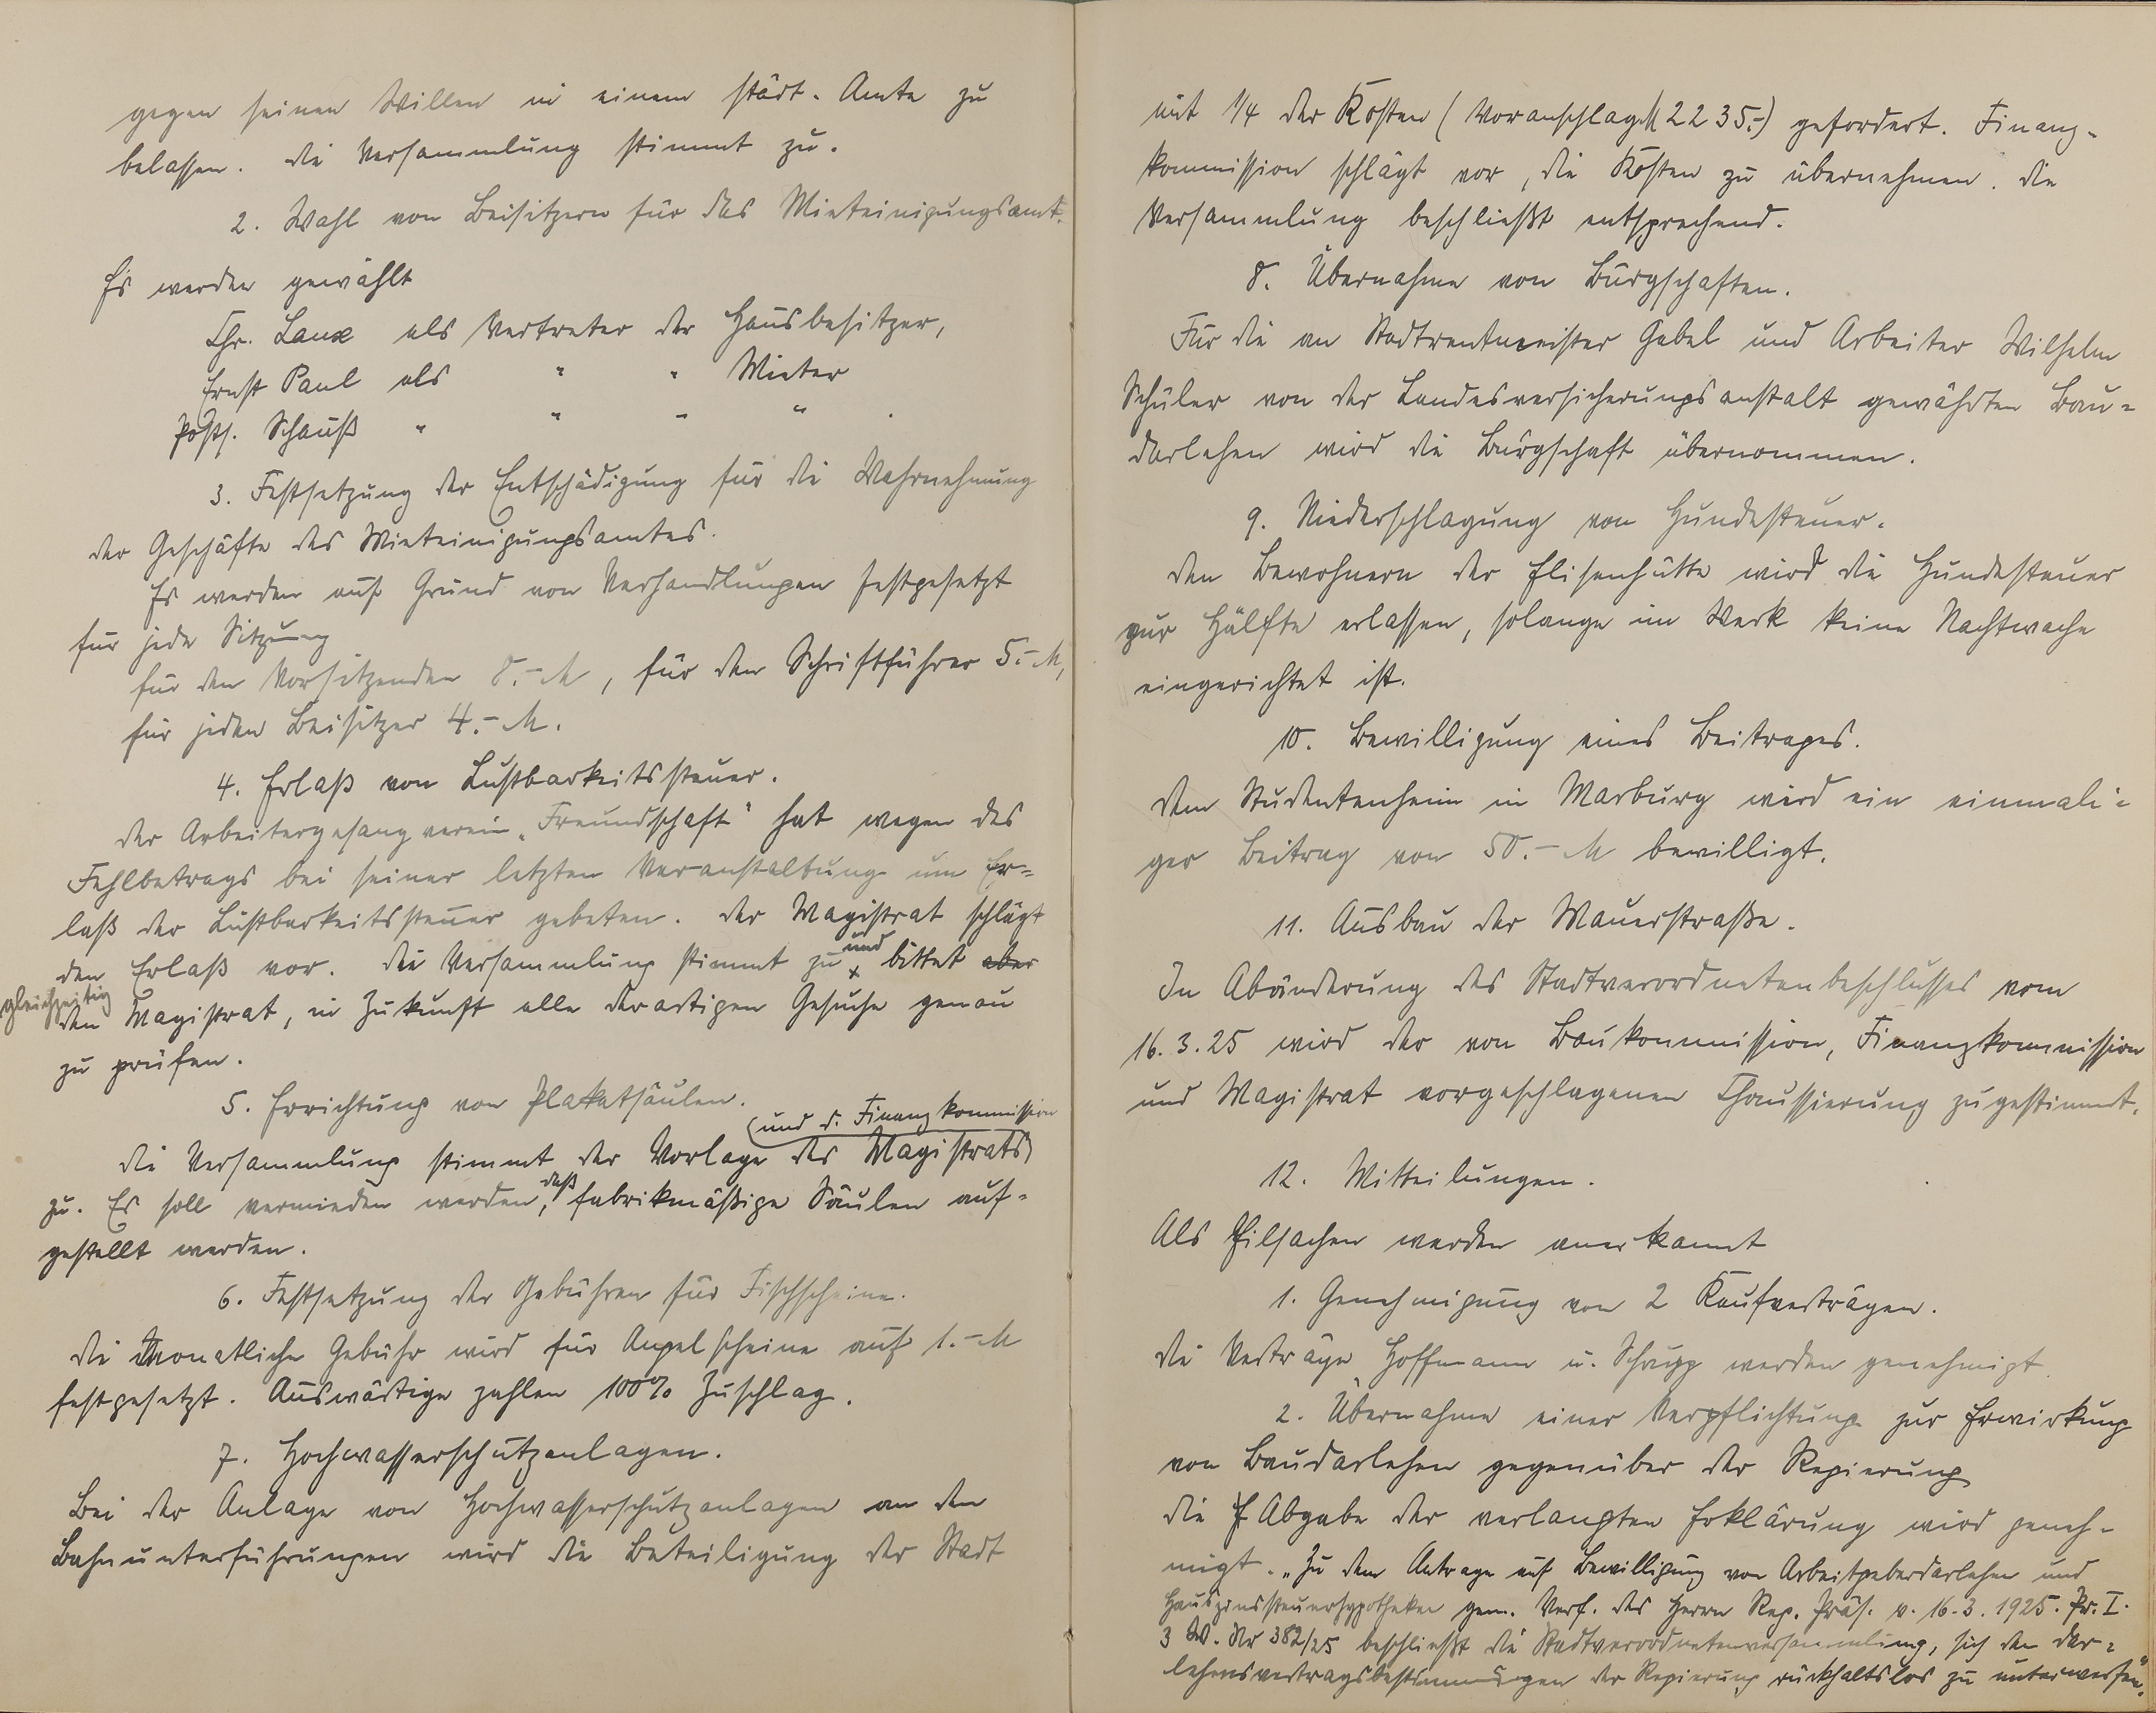 gegen seinen Willen in einem städt. Amte zu
belassen. Die Versammlung stimmt zu.
2. Wahl von Beisitzern für das Mieteinigungsamt.
Es werden gewählt
Chr. Laux als Vertreter der Hausbesitzer,
Ernst Paul als " " Mieter
Posts. Schauß " " " " .
3. Festsetzung der Entschädigung für die Wahrnehmung
der Geschäfte des Mieteinigungsamtes.
Es werden auf Grund von Verhandlungen festgesetzt
für jede Sitzung
für den Vorsitzenden 8.- M, für den Schriftführer 5.- M,
für jeden Beisitzer 4.- M.
4. Erlaß von Lustbarkeitssteuer.
Der Arbeitergesangverein „Freundschaft" hat wegen des
Fehlbetrags bei seiner letzten Veranstaltung um Er=
laß der Lustbarkeitssteuer gebeten. Der Magistrat schlägt
den Erlaß vor. Die Versammlung stimmt zu und bittet aber
gleichzeitig den Magistrat, in Zukunft alle derartigen Gesuche genau
zu prüfen.
5. Errichtung von Plakatsäulen.
und d. Finanzkommission
Die Versammlung stimmt der Vorlage des Magistrats
zu. Es soll vermieden werden, daß fabrikmäßige Säulen auf-
gestellt werden.
6. Festsetzung der Gebühren für Fischscheine.
Die Monatliche Gebühr wird für Angelscheine auf 1.- M
festgesetzt. Auswärtige zahlen 100% Zuschlag.
7. Hochwasserschutzanlagen.
Bei der Anlage von Hochwasserschutzanlagen an den
Bahnunterführungen wird die Beteiligung der Stadt
mit 1/4 der Kosten (Voranschlag M 2235.-) gefordert. Finanz-
kommission schlägt vor, die Kosten zu übernehmen. Die
Versammlung beschließt entsprechend.
8. Übernahme von Bürgschaften.
Für die an Stadtrentmeister Gabel und Arbeiter Wilhelm
Schüler von der Landesversicherungsanstalt gewährten Bau=
darlehen wird die Bürgschaft übernommen.
9. Niederschlagung von Hundesteuer.
Den Bewohnern der Elisenhütte wird die Hundesteuer
zur Hälfte erlassen, solange im Werk keine Nachtwache
eingerichtet ist.
10. Bewilligung eines Beitrages.
Dem Studentenheim in Marburg wird ein einmali=
ger Beitrag von 50.- M bewilligt.
11. Ausbau der Mauerstraße.
In Abänderung des Stadtverordnetenbeschlusses vom
16.3.25 wird der von Baukommission, Finanzkommission
und Magistrat vorgeschlagenen Chaussierung zugestimmt.
12. Mitteilungen.
Als Eilsachen werden anerkannt
1. Genehmigung von 2 Kaufverträgen.
Die Verträge Hoffmann u. Schupp werden genehmigt.
2. Übernahme einer Verpflichtung zur Erwirkung
von Baudarlehen gegenüber der Regierung
Die Abgabe der verlangten Erklärung wird geneh-
migt. „Zu dem Antrage auf Bewilligung von Arbeitgeberdarlehen und
Hauszinssteuerhypotheken gem. Verf. des Herrn Reg. Präs. v. 16.3.1925. Pr. I.
3 W. Nr 382/25 beschließt die Stadtverordnetenversammlung, sich den Dar=
lehensvertragsbestimmungen der Regierung rückhaltslos zu unterwerfen".